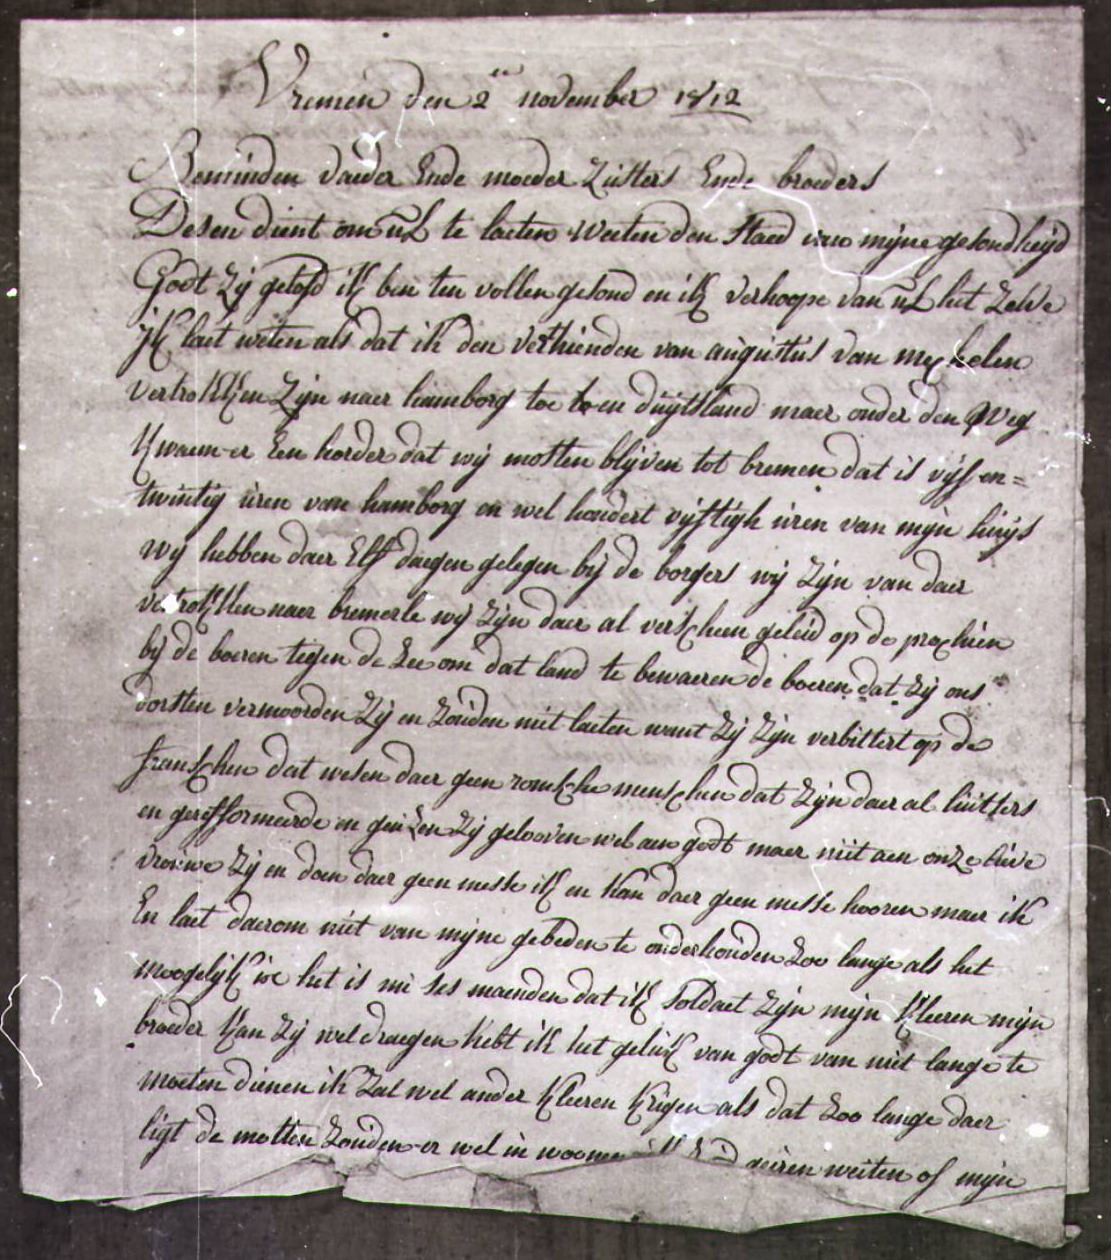 Vremen den 2en november 1812
Beminden vaeder Ende moeder Zusters Ende broeders
Desen dient om ul te laeten weeten den staed van mijne gesondheijd
Godt zij gelofd ik ben ten vollen gesond en ik verhoope van ul het zelve
jk laet weten als dat ik den verthienden van augustus van mechelen
vertrokken zijn naer hamborg toe to en duijtsland maer onder den Weg
kwaem-er Een horder dat wij mosten blijven tot bremen dat is vijf en=
twintig uren van hamborg en wel hondert vijftigh uren van mijn huijs
wij hebben daer Elf daegen gelegen bij de borgers wij zijn van daer
vertrokken naer bremerle wij zijn daer al verscheen geleid op de prochien
bij de boeren tegen de zee om dat land te bewaeren de boeren dat zij ons
dorsten vermoorden zij en zouden niet laeten want zij zijn verbittert op de
franschen dat wesen daer geen romsche menschen dat zijn daer al luitters
en gereformeerde en geuzen zij gelooven wel aen godt maer niet aen onze lieve
vrouwe zij en doen daer geen messe ik en kan daer geen messe hooren maer ik
En laet daerom niet van mijne gebeden te onderhouden zoo lange als het
moogelijk is het is nu ses maenden dat ik soldaet zijn mijn kleeren mijn
broeder kan zij wel draegen hebt ik het geluk van godt van niet lange te
moeten dienen ik zal wel ander kleeren krigen als dat zoo lange daer
ligt de motten zouden-er wel in woonen geiren weiten of mijn